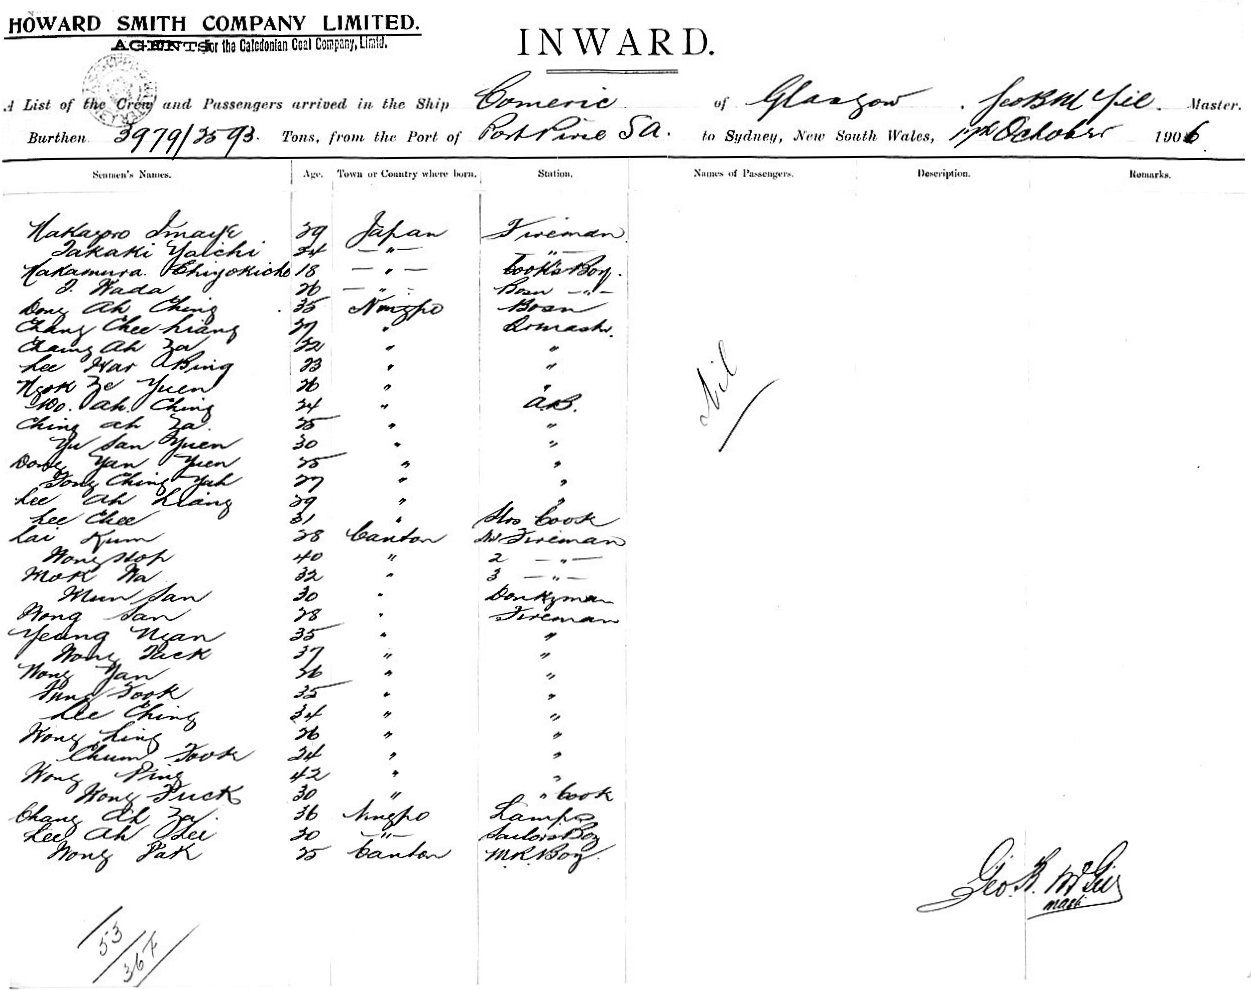 HOWARD SMITH COMPANY LIMITED.
AGENTS for the Caledonian Coal Company, Limtd.
INWARD.
A List of the Crew and Passengers arrived in the Ship Comeric of Glasgow, Geo B McGil Master.
Burthen 3979/2593 Tons, from the Port of Port Pirie SA. to Sydney, New South Wales, October 1906
Seamen's Names. Age. Town or Country where born. Station. Names of Passengers. Description. Remarks.
29 Japan Fireman
Takaki Yaichi 24 — " — — " —
Nakamura 18 — " — Cook's Boy.
Wada 26 — " — Bosn — " —
Dong Ah Ching 35 Ningpo Bosn
Chang Chee Liang 37 "
Chang Ah Za 32 " "
Lee War Bing 23 " "
Ngok Ze Yuen 26 " "
Wo. Ah Ching 24 " A.B.
Ching Ah Za. 25 " "
Yu San Yuen 30 " "
Dong Yan Yuen 25 " "
Tong Ching Yah 27 " "
Lee Ah Liang 29 " "
Lee Chee 31 " Cook
Lai Kum 28 Canton Fireman
Wong Hop 40 " 2 — " —
Mok Wa 32 " 3 — " —
Mun San 30 " Donkyman
Wong San 28 " Fireman
Yeung Ngan 35 " "
Wong Tuck 37 " "
Wong Yan 26 " "
Fung Fook 35 " "
Lee Ching 34 " "
Wong Ling 26 " "
Chum Fook 24 " "
Wong Ping 42 " "
Wong Fuck 30 " " Cook
Chang Ah Za. 36 Ningpo Lamps
Lee Ah Lei 20 — " — Sailors Boy
Wong Pak 25 Canton M.R. Boy.
Nil
Geo. B. McGill
Mast.
53
367